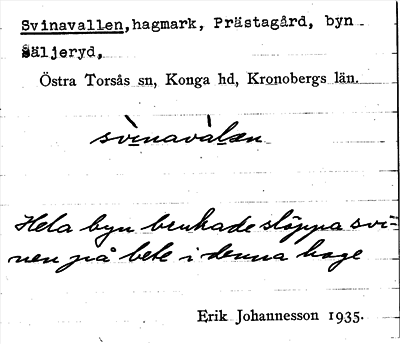 Svinavallen, hagmark, Prästagård, byn
Säljeryd,
Östra Torsås sn, Konga hd, Kronobergs län.
svìnavàlən
Hela byn brukade släppa svi-
nen på bete i denna hage
Erik Johannesson 1935.